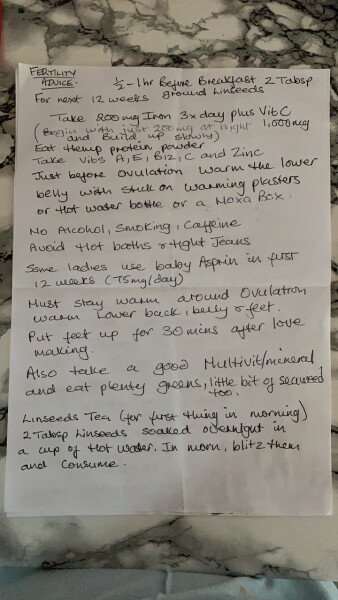 FERTILITY
ADVICE: ½-1hr Before Breakfast 2 Tabsp
For next 12 weeks ground Linseeds
Take 200mg Iron 3x day plus Vit C
(Begin with just 200mg at night 1,000mg
and build up slowly)
Eat Hemp protein powder
Take Vits A, E, B12, C and Zinc
Just before Ovulation warm the lower
belly with stick on warming plasters
or Hot water bottle or a Moxa Box.
No Alcohol, Smoking, Caffeine
Avoid Hot baths & tight Jeans
Some ladies use baby Asprin in first
12 weeks (75mg/day)
Must stay warm around Ovulation
warm lower back, belly & feet.
Put feet up for 30 mins after love
making.
Also take a good Multivit/mineral
and eat plenty greens, little bit of seaweed
too.
Linseeds Tea (for first thing in morning)
2 Tabsp Linseeds soaked overnight in
a cup of Hot water. In morn, blitz them
and consume.